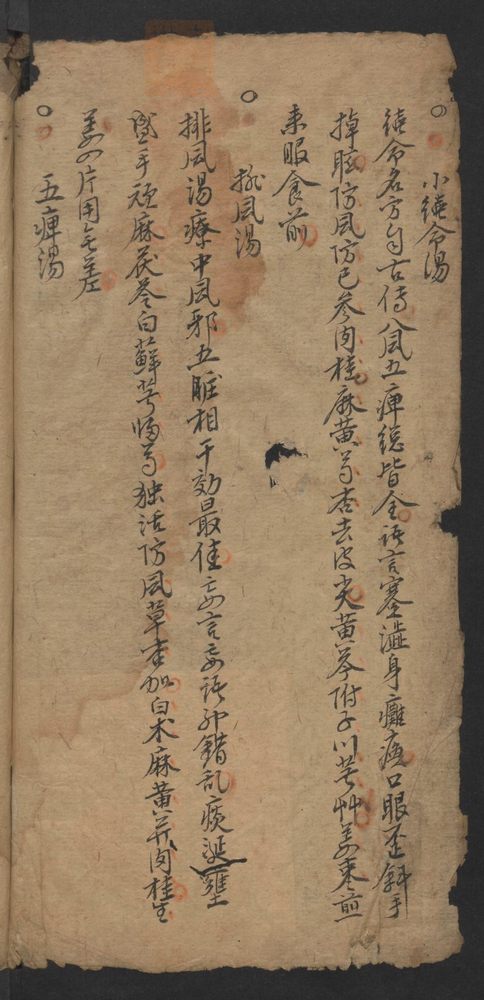 小續命湯
續命名方自古傳八風五痺總皆全語言蹇澁身癱瘓口眼歪斜手
掉眩防風防己參肉桂麻黃芍杏去皮尖黃芩附子川芎艸姜棗煎
来服食前
排風湯
排風湯療中風邪五臟相干効最佳妄言妄語神錯乱痰涎壅
盛手頑麻茯苓白蘚芎歸芍独活防風草杏加白朮麻黃并肉桂生
姜四片用無差
五痺湯